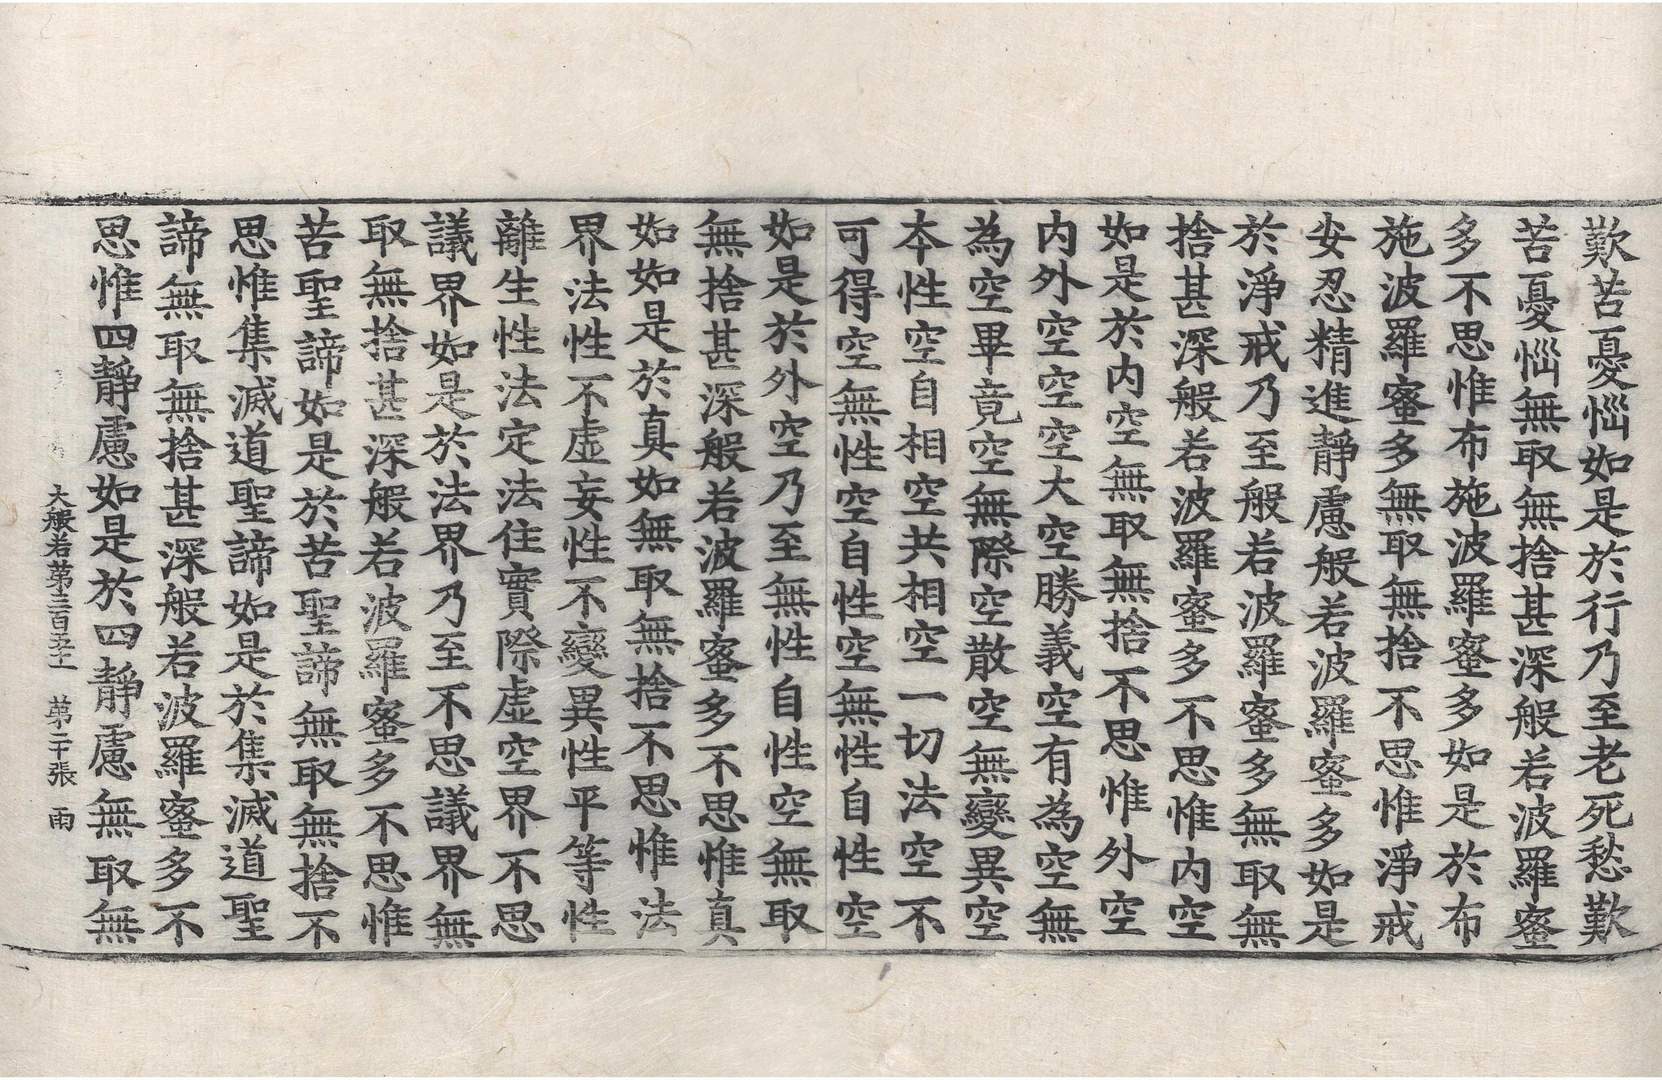 歎苦憂惱如是於行乃至老死愁歎
苦憂惱無取無捨甚深般若波羅蜜
多不思惟布施波羅蜜多如是於布
施波羅蜜多無取無捨不思惟淨戒
安忍精進靜慮般若波羅蜜多如是
於淨戒乃至般若波羅蜜多無取無
捨甚深般若波羅蜜多不思惟內空
如是於內空無取無捨不思惟外空
內外空空空大空勝義空有為空無
為空畢竟空無際空散空無變異空
本性空自相空共相空一切法空不
可得空無性空自性空無性自性空
如是於外空乃至無性自性空無取
無捨甚深般若波羅蜜多不思惟真
如如是於真如無取無捨不思惟法
界法性不虛妄性不變異性平等性
離生性法定法住實際虛空界不思
議界如是於法界乃至不思議界無
取無捨甚深般若波羅蜜多不思惟
苦聖諦如是於苦聖諦無取無捨不
思惟集滅道聖諦如是於集滅道聖
諦無取無捨甚深般若波羅蜜多不
思惟四靜慮如是於四靜慮無取無
大般若第三百五十一 第二十張 雨